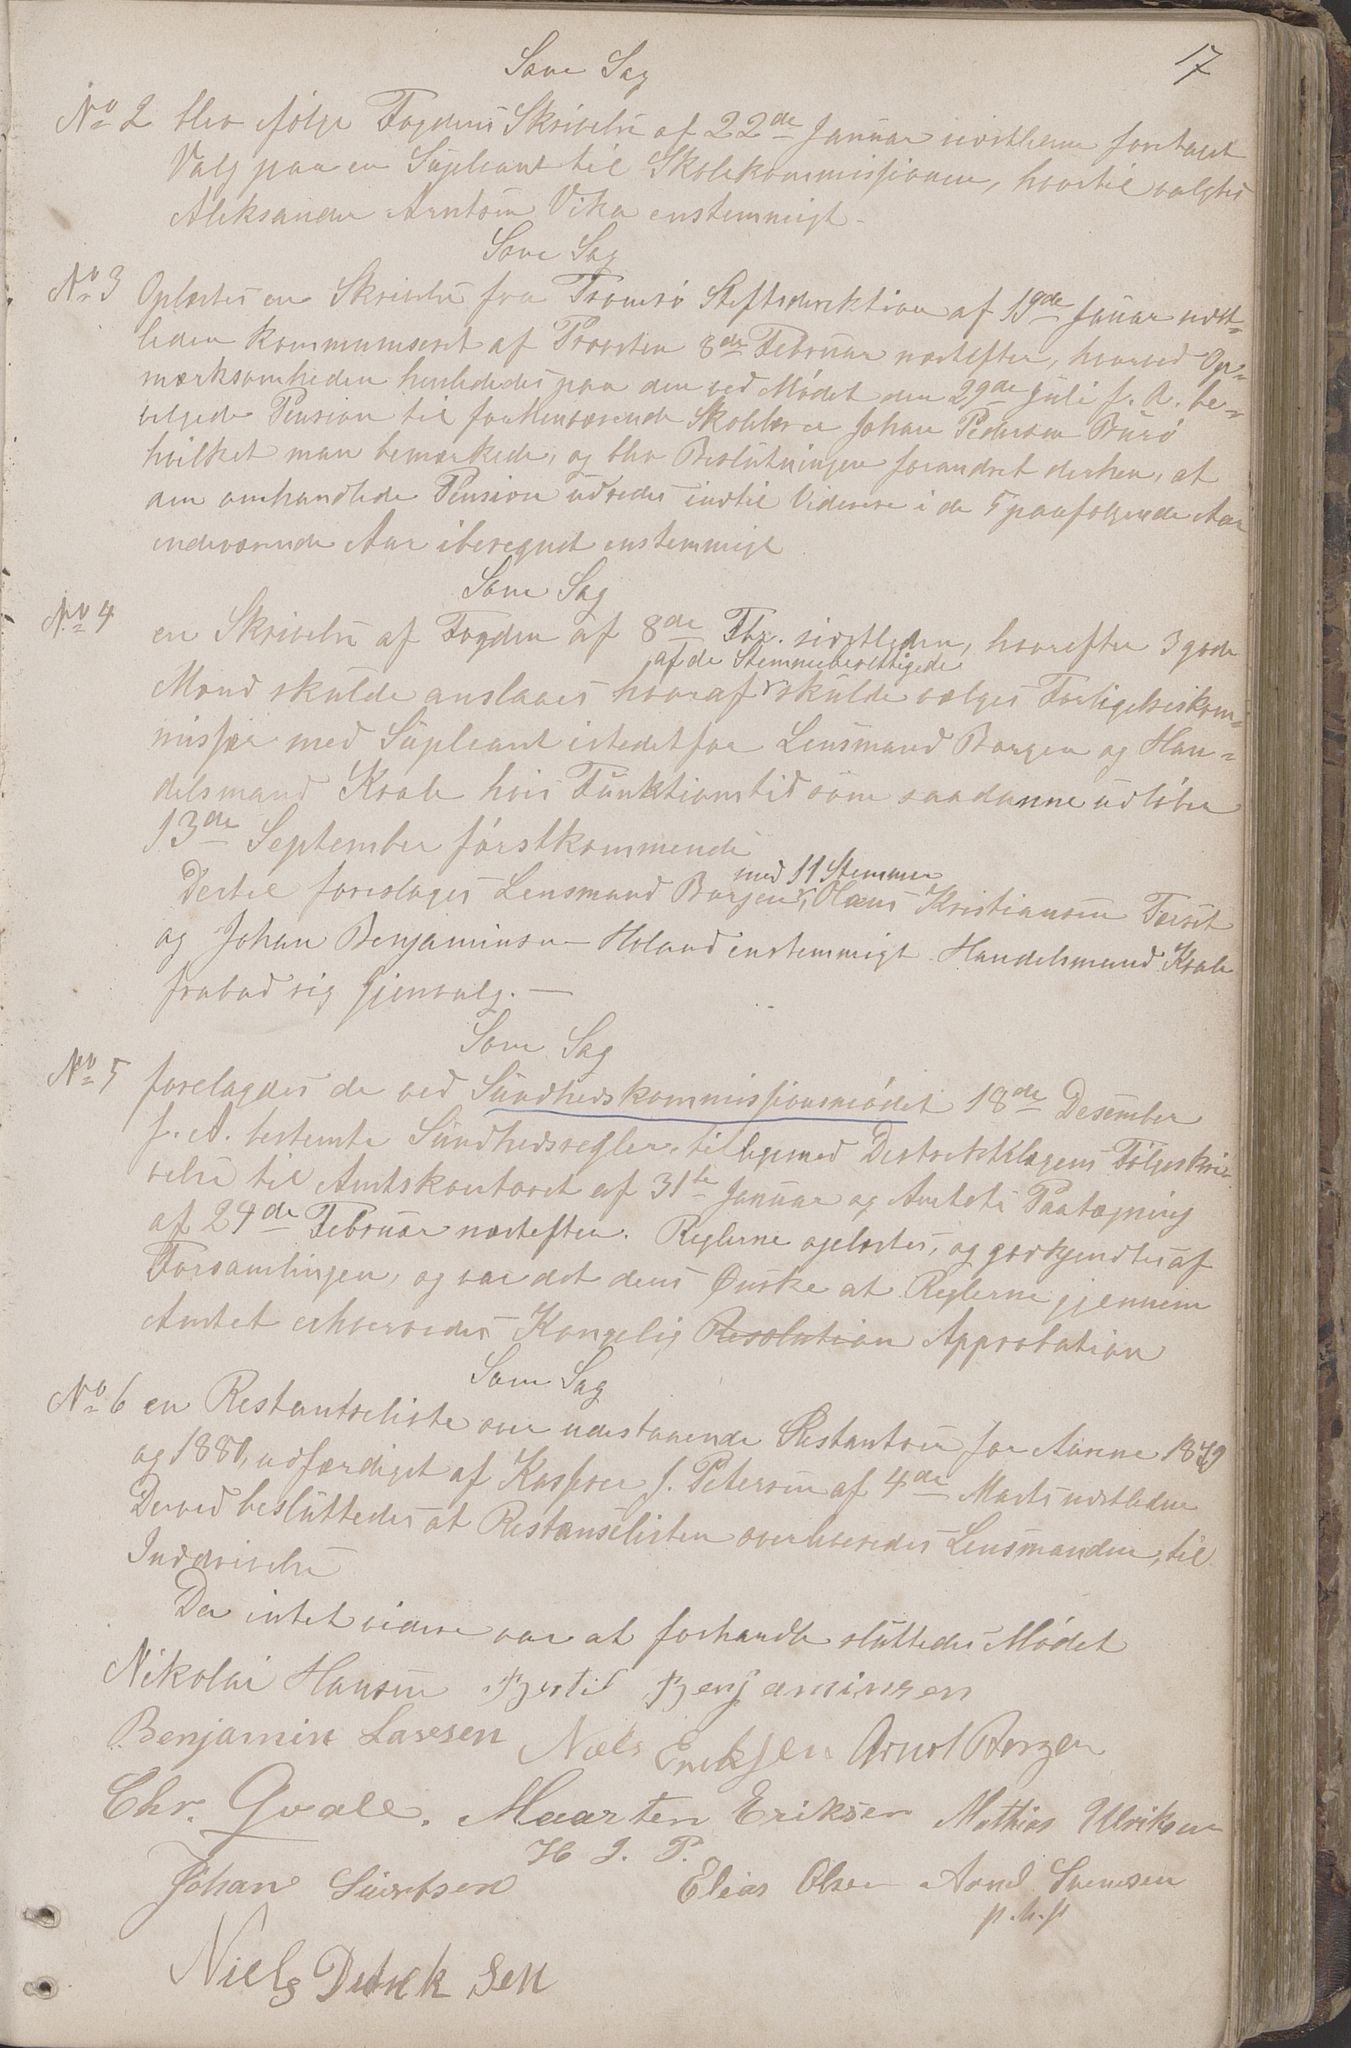 17
Som Sag
No 2 blev ifølge Fogdens Skrivelse af 22de Januar sidstleden foretaget
Valg paa en Supleant til Skolekommissionen, hvortil valgtes
Aleksander Arntsen Vika enstemmigt.
Som Sag
No 3 Oplæstes en Skrivelse fra Tromsø Stiftsdirektion af 19de Januar sidst-
leden kommuniseret af Provsten 8de Februar næstefter, hvorved Op-
mærksomheden henlededes paa den ved Mødet den 29de Juli f. A. be-
vilgede Pension til forhenværende Skolelærer Johan Pedersen Burø
hvilket man bemærkede, og blev Beslutningen forandret derhen, at
den omhandlede Pension udredes indtil Videre i de 5 paafølgende Aar
indeværende Aar iberegnet enstemmigt
Som Sag
No 4 en Skrivelse af Fogden af 8de Fbr. sidstleden, hvorefter 3 gode
af de Stemmeberettigede
Mænd skulde anslaaes hvoraf skulde vælges Forligelseskom-
missær med Supleant istedetfor Lensmand Borgen og Han-
delsmand Kvale hvis Funktionstid som saadanne udløber
13de September førstkommende
med 11 Stemmer
Dertil foreslages Lensmand Borgen, Hans Kristiansen Torset
og Johan Benjaminsen Holand enstemmigt. Handelsmand Kvale
frabad sig Gjenvalg. —
Som Sag
No 5 forelagdes de ved Sundhedskommissionsmødet 18de Desember
f. A. bestemte Sundhedsregler, tilligemed Distriktslægens Følgeskri-
velse til Amtskontoret af 31te Januar og Amtets Paategning
af 24de Februar næstefter. Reglerne oplæstes, og godkjendtes af
Forsamlingen, og var det dens Ønske at Reglerne gjennem
Amtet erhvervedes Kongelig Resolution Approbation
Som Sag
No 6 en Restantseliste over udestaaende Restantser for Aarene 1879
og 1880, udfærdiget af Kasserer J. Petersen af 4de Marts sidstleden
Derved besluttedes at Restanselisten overleveredes Lensmanden, til
Inddrivelse
Da intet videre var at forhandle sluttedes Mødet
Nikolai Hansen Bertil Benjaminsen
Benjamin Larsen Nels Eriksen Arnol Borgen
Chr. Qvale. Maarten Eriksen Mathias Ulriksen
H J. P.
Johan Sivertsen Elias Olsen Arnt Svensen
p.h.p
Niels Dedrik sen